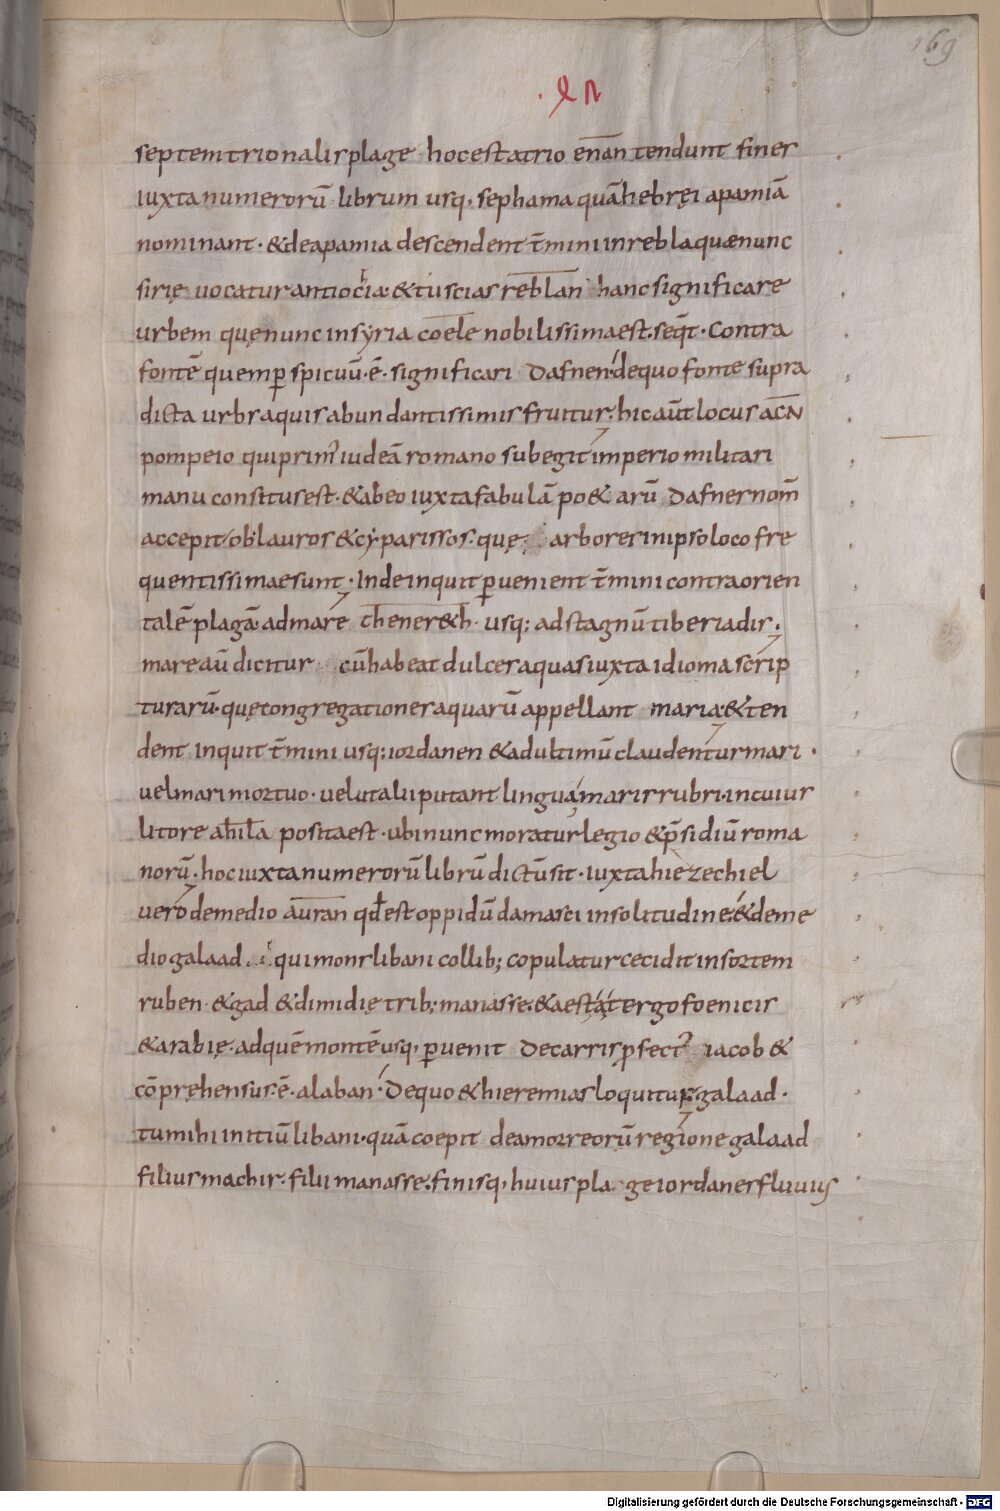 169
septemtrionalis plage hoc est atrio enan tendunt fines
iuxta numerorū librum usq; sephama quā hebręi apamiā
nominant · & de apamia descendent t̄mini in rebla quae nunc
sirię uocatur antiochia & ut scias reblan hanc significare
urbem quę nunc in syria coele nobilissima est. seq̄t · Contra
fontē quem ꝑspicuū · ē · significari dafnen · de quo fonte supra
dicta urbs aquis abundantissimis fruitur · hic aūt locus a cn̄
pompeio qui primꝰ iudeā romano subegit imperio militari
manu consitus est · & ab eo iuxta fabulā po&arū dafnes nom̄
accepit ob lauros & cyparissos · quę arbores in ipso loco fre
quentissimae sunt · Inde inquit ꝑuenient t̄mini contra orien
talē plagā ad mare chener&h · usq; ad stagnū tiberiadis ·
mare aū dicitur cū habeat dulces aquas iuxta idioma scrip
turarū · quę congregationes aquarū appellant maria & ten
dent inquit t̄mini usq; iordanen & ad ultimū claudentur mari ·
uel mari mortuo · uelut alii putant lingua maris rubri · in cuius
litore ahila posita est · ubi nunc moratur legio & p̄sidiū roma
norū · hoc iuxta numerorū librū dictū sit · iuxta hiezechiel
uero de medio auran qd̄ est oppidū damasci in solitudine & de me
dio galaad · qui mons libani collib; copulatur cecidit in sortem
ruben · & gad & dimidię trib; manasse · & aest a tergo foenicis
& arabię · ad quē montē usq; ꝑuenit de carris ꝓfectꝰ iacob &
cōpręhensus · ē · a laban · de quo & hieremias loquitur galaad ·
tu mihi initiū libani · quā coepit de amorreorū regione galaad
filius machir · filii manasse · finisq; huius plagę iordanes fluuius
Digitalisierung gefördert durch die Deutsche Forschungsgemeinschaft - DFG